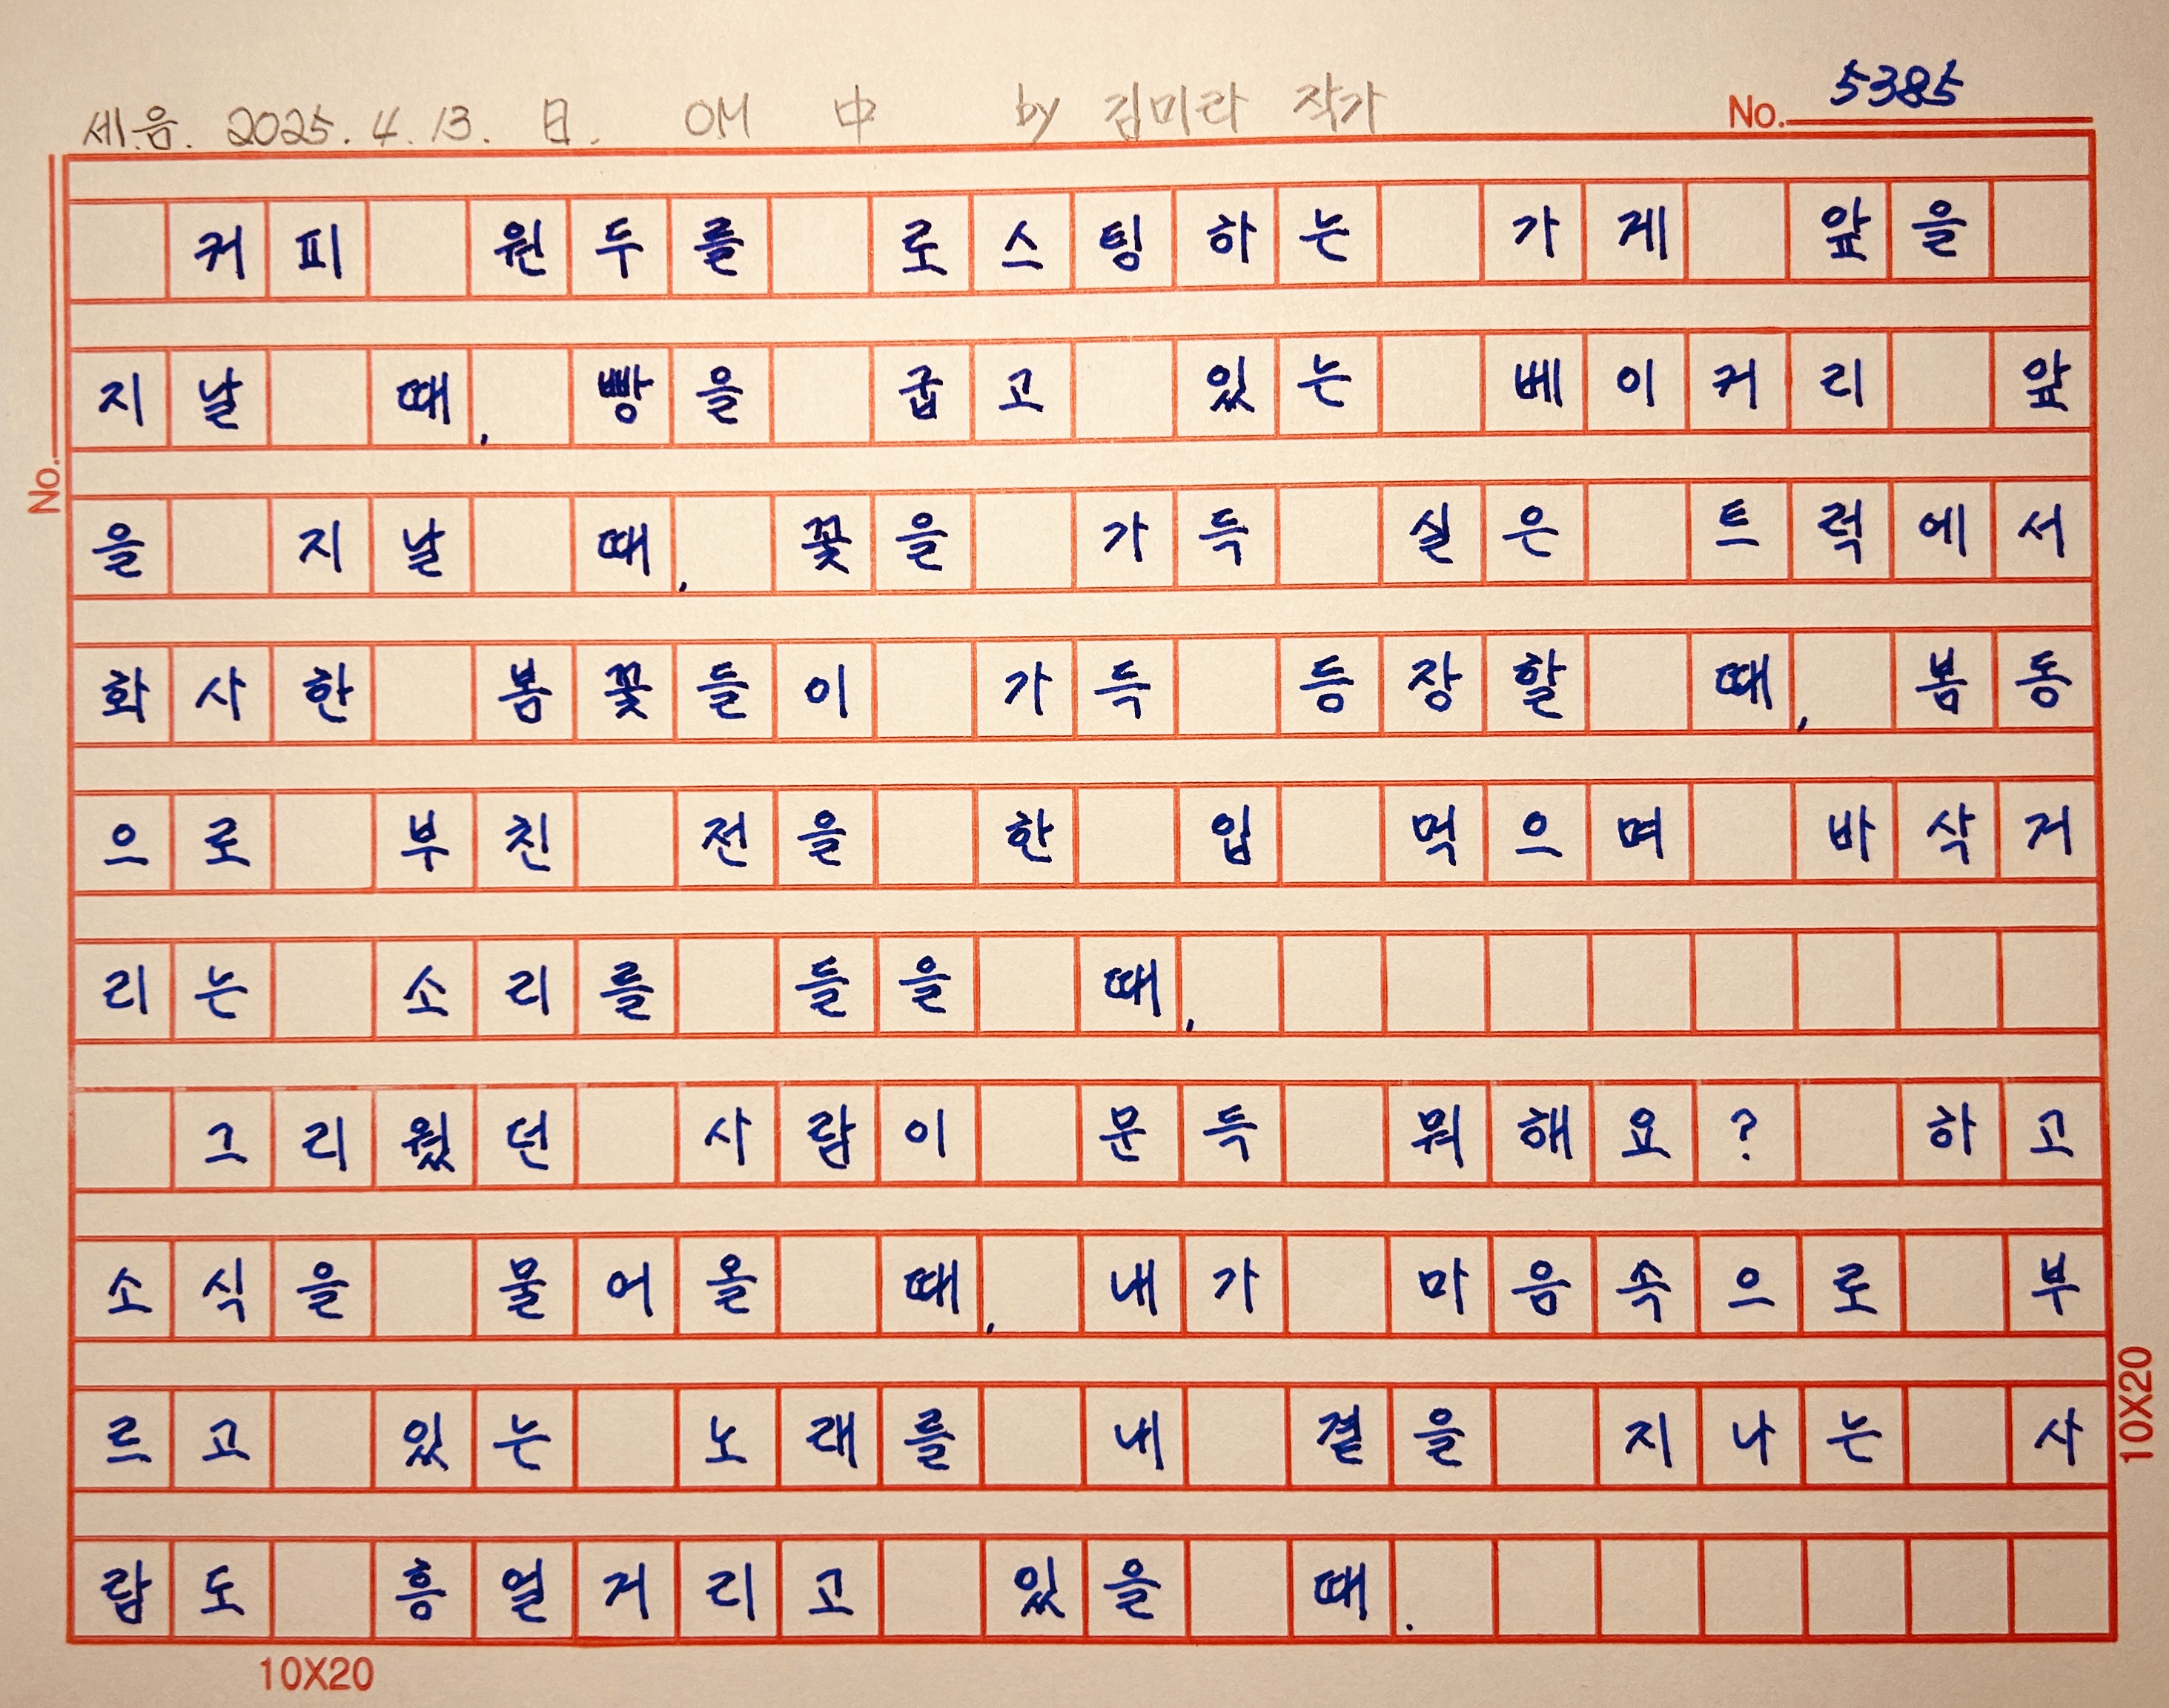 세음. 2025. 4. 13. 日. OM 中 by 김미라 작가
No. 5385
커피 원두를 로스팅하는 가게 앞을
지날 때, 빵을 굽고 있는 베이커리 앞
을 지날 때, 꽃을 가득 실은 트럭에서
화사한 봄꽃들이 가득 등장할 때, 봄동
으로 부친 전을 한 입 먹으며 바삭거
리는 소리를 들을 때,
그리웠던 사람이 문득 뭐해요? 하고
소식을 물어올 때, 내가 마음속으로 부
르고 있는 노래를 내 곁을 지나는 사
람도 흥얼거리고 있을 때.
No.
10X20
10X20